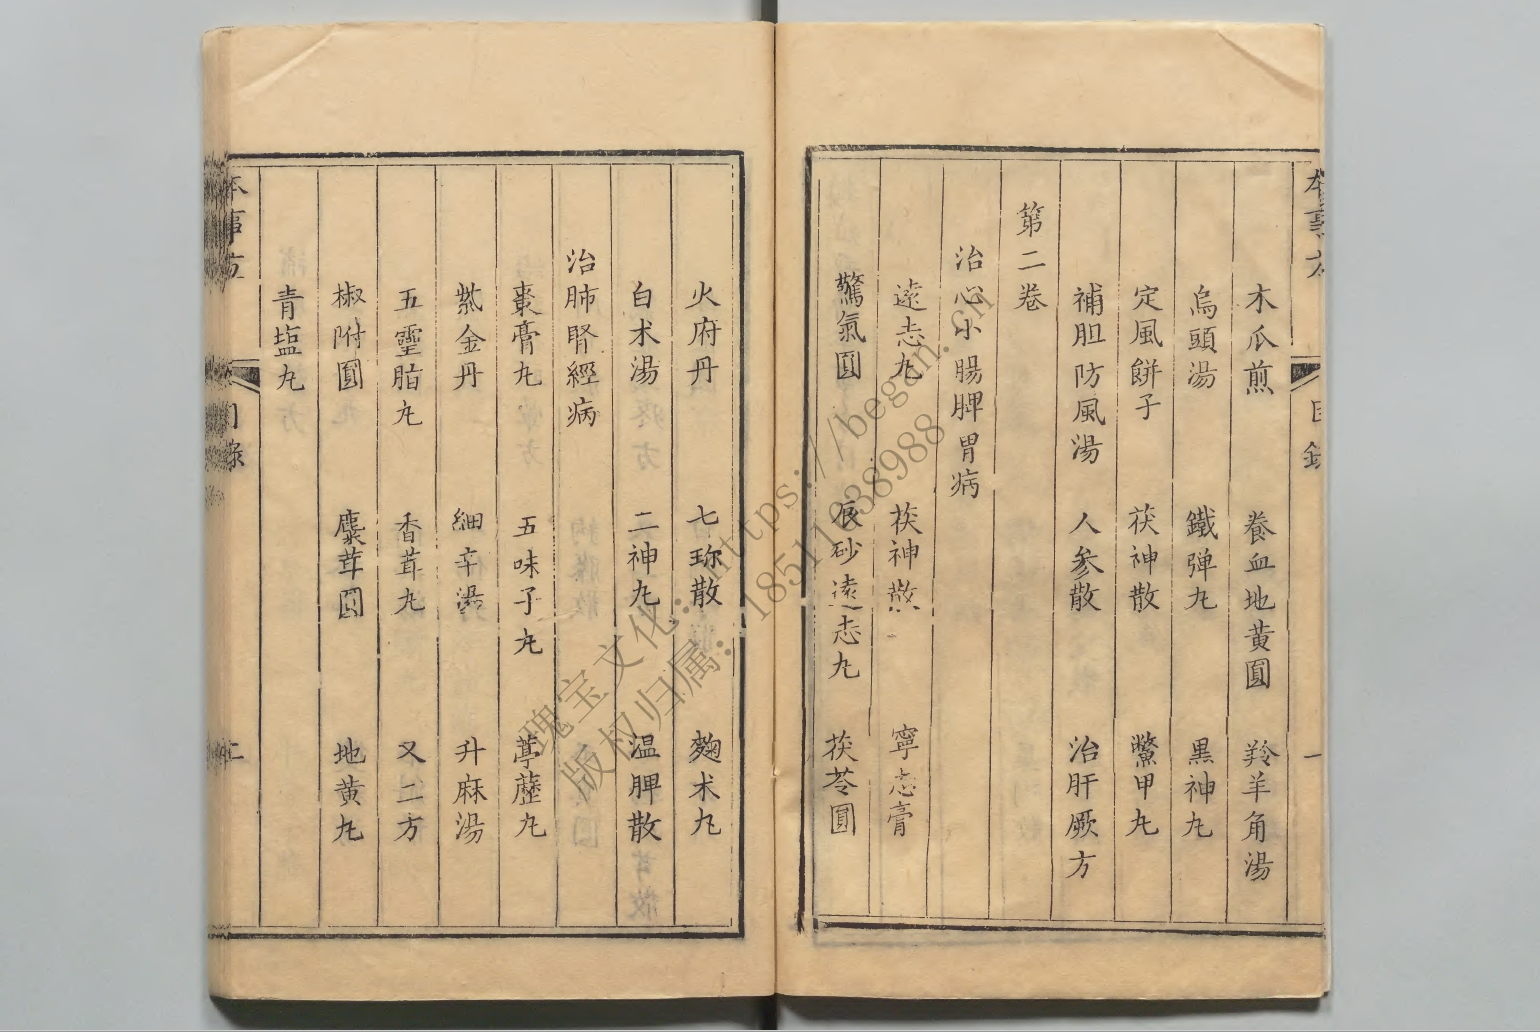 木瓜煎 養血地黄圓 羚羊角湯
烏頭湯 鐵弹丸 黒神丸
定風餅子 茯神散 鱉甲丸
補胆防風湯 人参散 治肝厥方
第二卷
治心小腸脾胃病
遠志丸 茯神散 寧志膏
驚氣圓 辰砂遠志丸 茯苓圓
火府丹 七珎散 麴术丸
白术湯 二神丸 温脾散
治肺腎經病
棗膏丸 五味子丸 葶藶丸
紫金丹 細辛湯 升麻湯
五靈脂丸 香茸丸 又二方
椒附圓 麋茸圓 地黄丸
青塩丸
本事方 目録 一
本事方 目録 二
瑰宝文化：https://began.cn
版权归属：18511838988